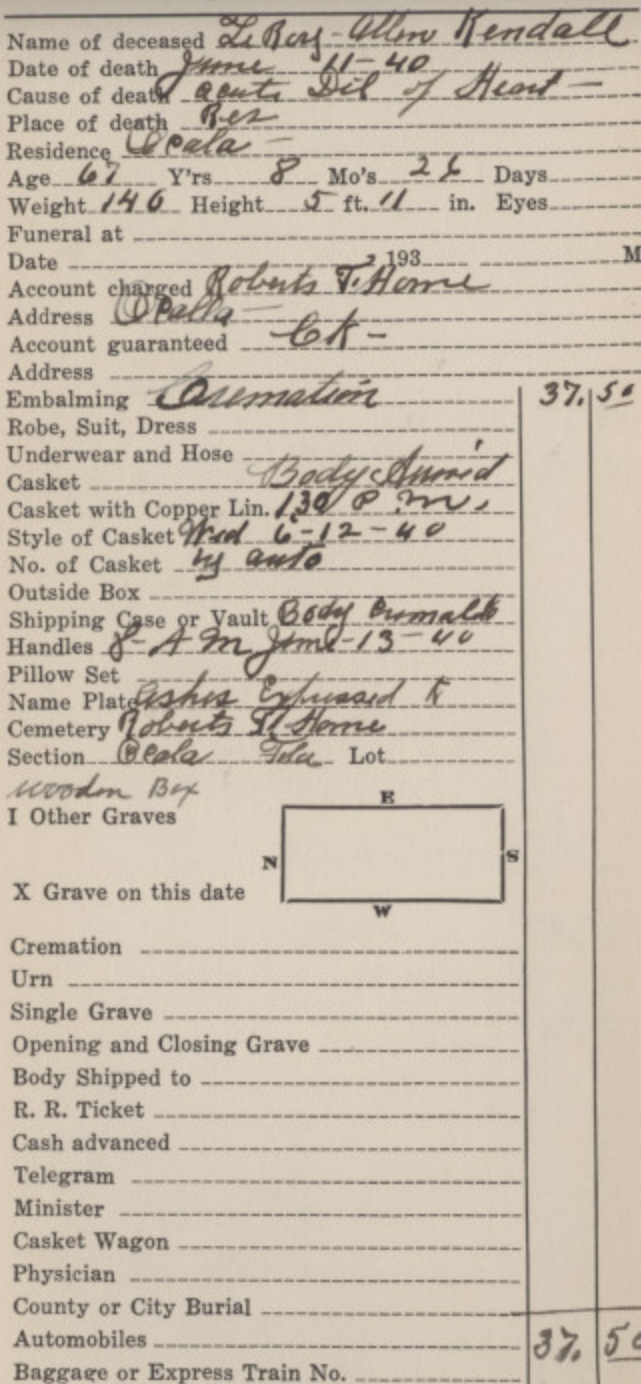 Name of deceased Le Roy - Allen Kendall
Date of death June 11-40
Cause of death acute Dil of Heart -
Place of death Res
Residence Ocala -
Age 67 Y'rs 8 Mo's 26 Days
Weight 140 Height 5 ft. 11 in. Eyes
Funeral at
Date , 193 M
Account charged Roberts F. Home
Address Ocalla -
Account guaranteed CK -
Address
Embalming Cremation 37. 50
Robe, Suit, Dress
Underwear and Hose
Casket Body Arrived
Casket with Copper Lin. 130 P.m.
Style of Casket Wed 6-12-40
No. of Casket by auto
Outside Box
Shipping Case or Vault Body Cremated
Handles 8-A m June-13-40
Pillow Set
Name Plate Ashes Expressed to
Cemetery Roberts F. Home
Section Ocala Fla Lot
wooden Box
I Other Graves
E
N
S
X Grave on this date
W
Cremation
Urn
Single Grave
Opening and Closing Grave
Body Shipped to
R. R. Ticket
Cash advanced
Telegram
Minister
Casket Wagon
Physician
County or City Burial
Automobiles 37. 50
Baggage or Express Train No.